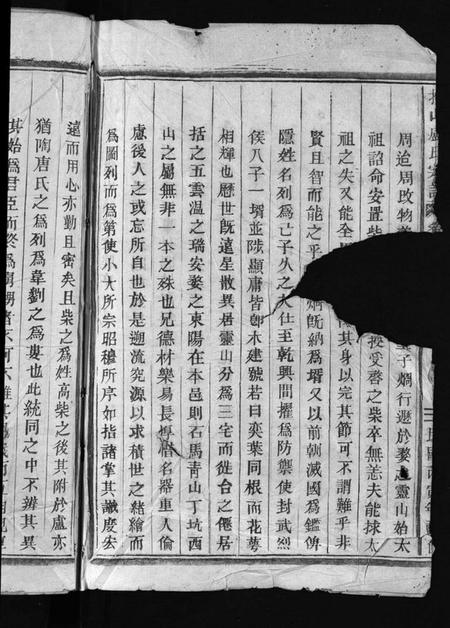 周迨周政物
子烱行遯於婺之靈山始太
祖詔命安置柴
授受啓之柴卒無恙夫能拯太
祖之失又能全
其身以完其節可不謂難乎非
賢且智而能之乎
烱旣納為壻又以前朝滅國為鑑俾
隱姓名列為亡子久之大仕至乾興間擢為防禦使封武烈
侯八子一壻並陟顯庸皆卽木建號若曰奕葉同根而花萼
相輝也曆世旣遠星散異居靈山分為三宅而徙台之僊居
括之五雲温之瑞安婺之東陽在本邑則石馬青山丁坑西
山之屬無非一本之殊也兄德材樂易長厚㫺名器重人倫
慮後人之或忘所自也於是遡流究源以求積世之緒繪而
為圖列而為第使小大所宗昭穆所序如指諸掌其識度宏
遠而用心亦勤且密矣且柴之為姓高柴之後其附於盧亦
猶陶唐氏之為列為韋劉之為婁也此統同之中不辨其異
其始為君臣而終為舅甥者不可不